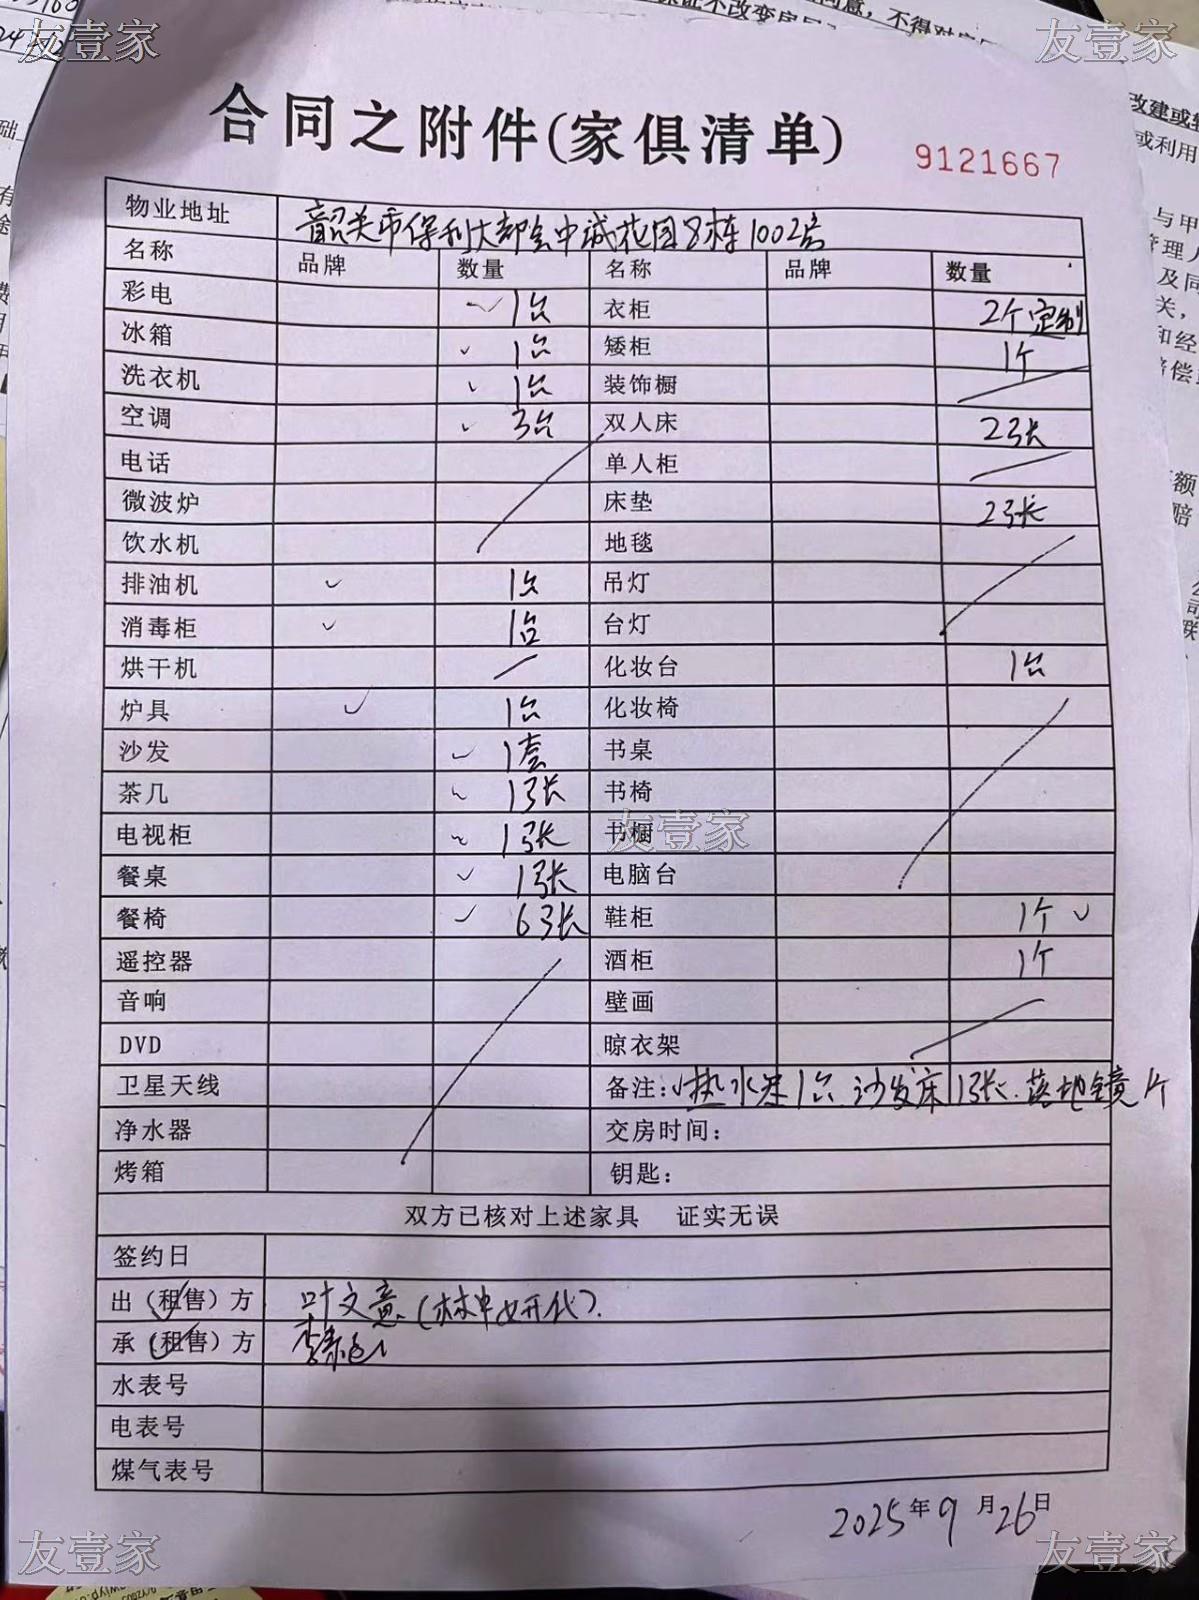 友壹家
友壹家
合同之附件(家俱清单)
9121667
物业地址 韶关市保利大都会中诚花园8栋1002房
名称 品牌 数量 名称 品牌 数量
彩电 1台 衣柜 2个定制
冰箱 1台 矮柜 1个
洗衣机 1台 装饰橱
空调 3台 双人床 2张
电话 单人柜
微波炉 床垫 2张
饮水机 地毯
排油机 1台 吊灯
消毒柜 1台 台灯
烘干机 化妆台 1台
炉具 1台 化妆椅
沙发 1套 书桌
茶几 1张 书椅
电视柜 1张 书橱
友壹家
餐桌 1张 电脑台
餐椅 6张 鞋柜 1个
遥控器 酒柜 1个
音响 壁画
DVD 晾衣架
卫星天线 备注: 热水器1台.沙发床1张.落地镜1片
净水器 交房时间:
烤箱 钥匙:
双方已核对上述家具 证实无误
签约日
出(租售)方 叶文意(林中妍代).
承(租售)方 李
水表号
电表号
煤气表号
2025年9月26日
友壹家
友壹家